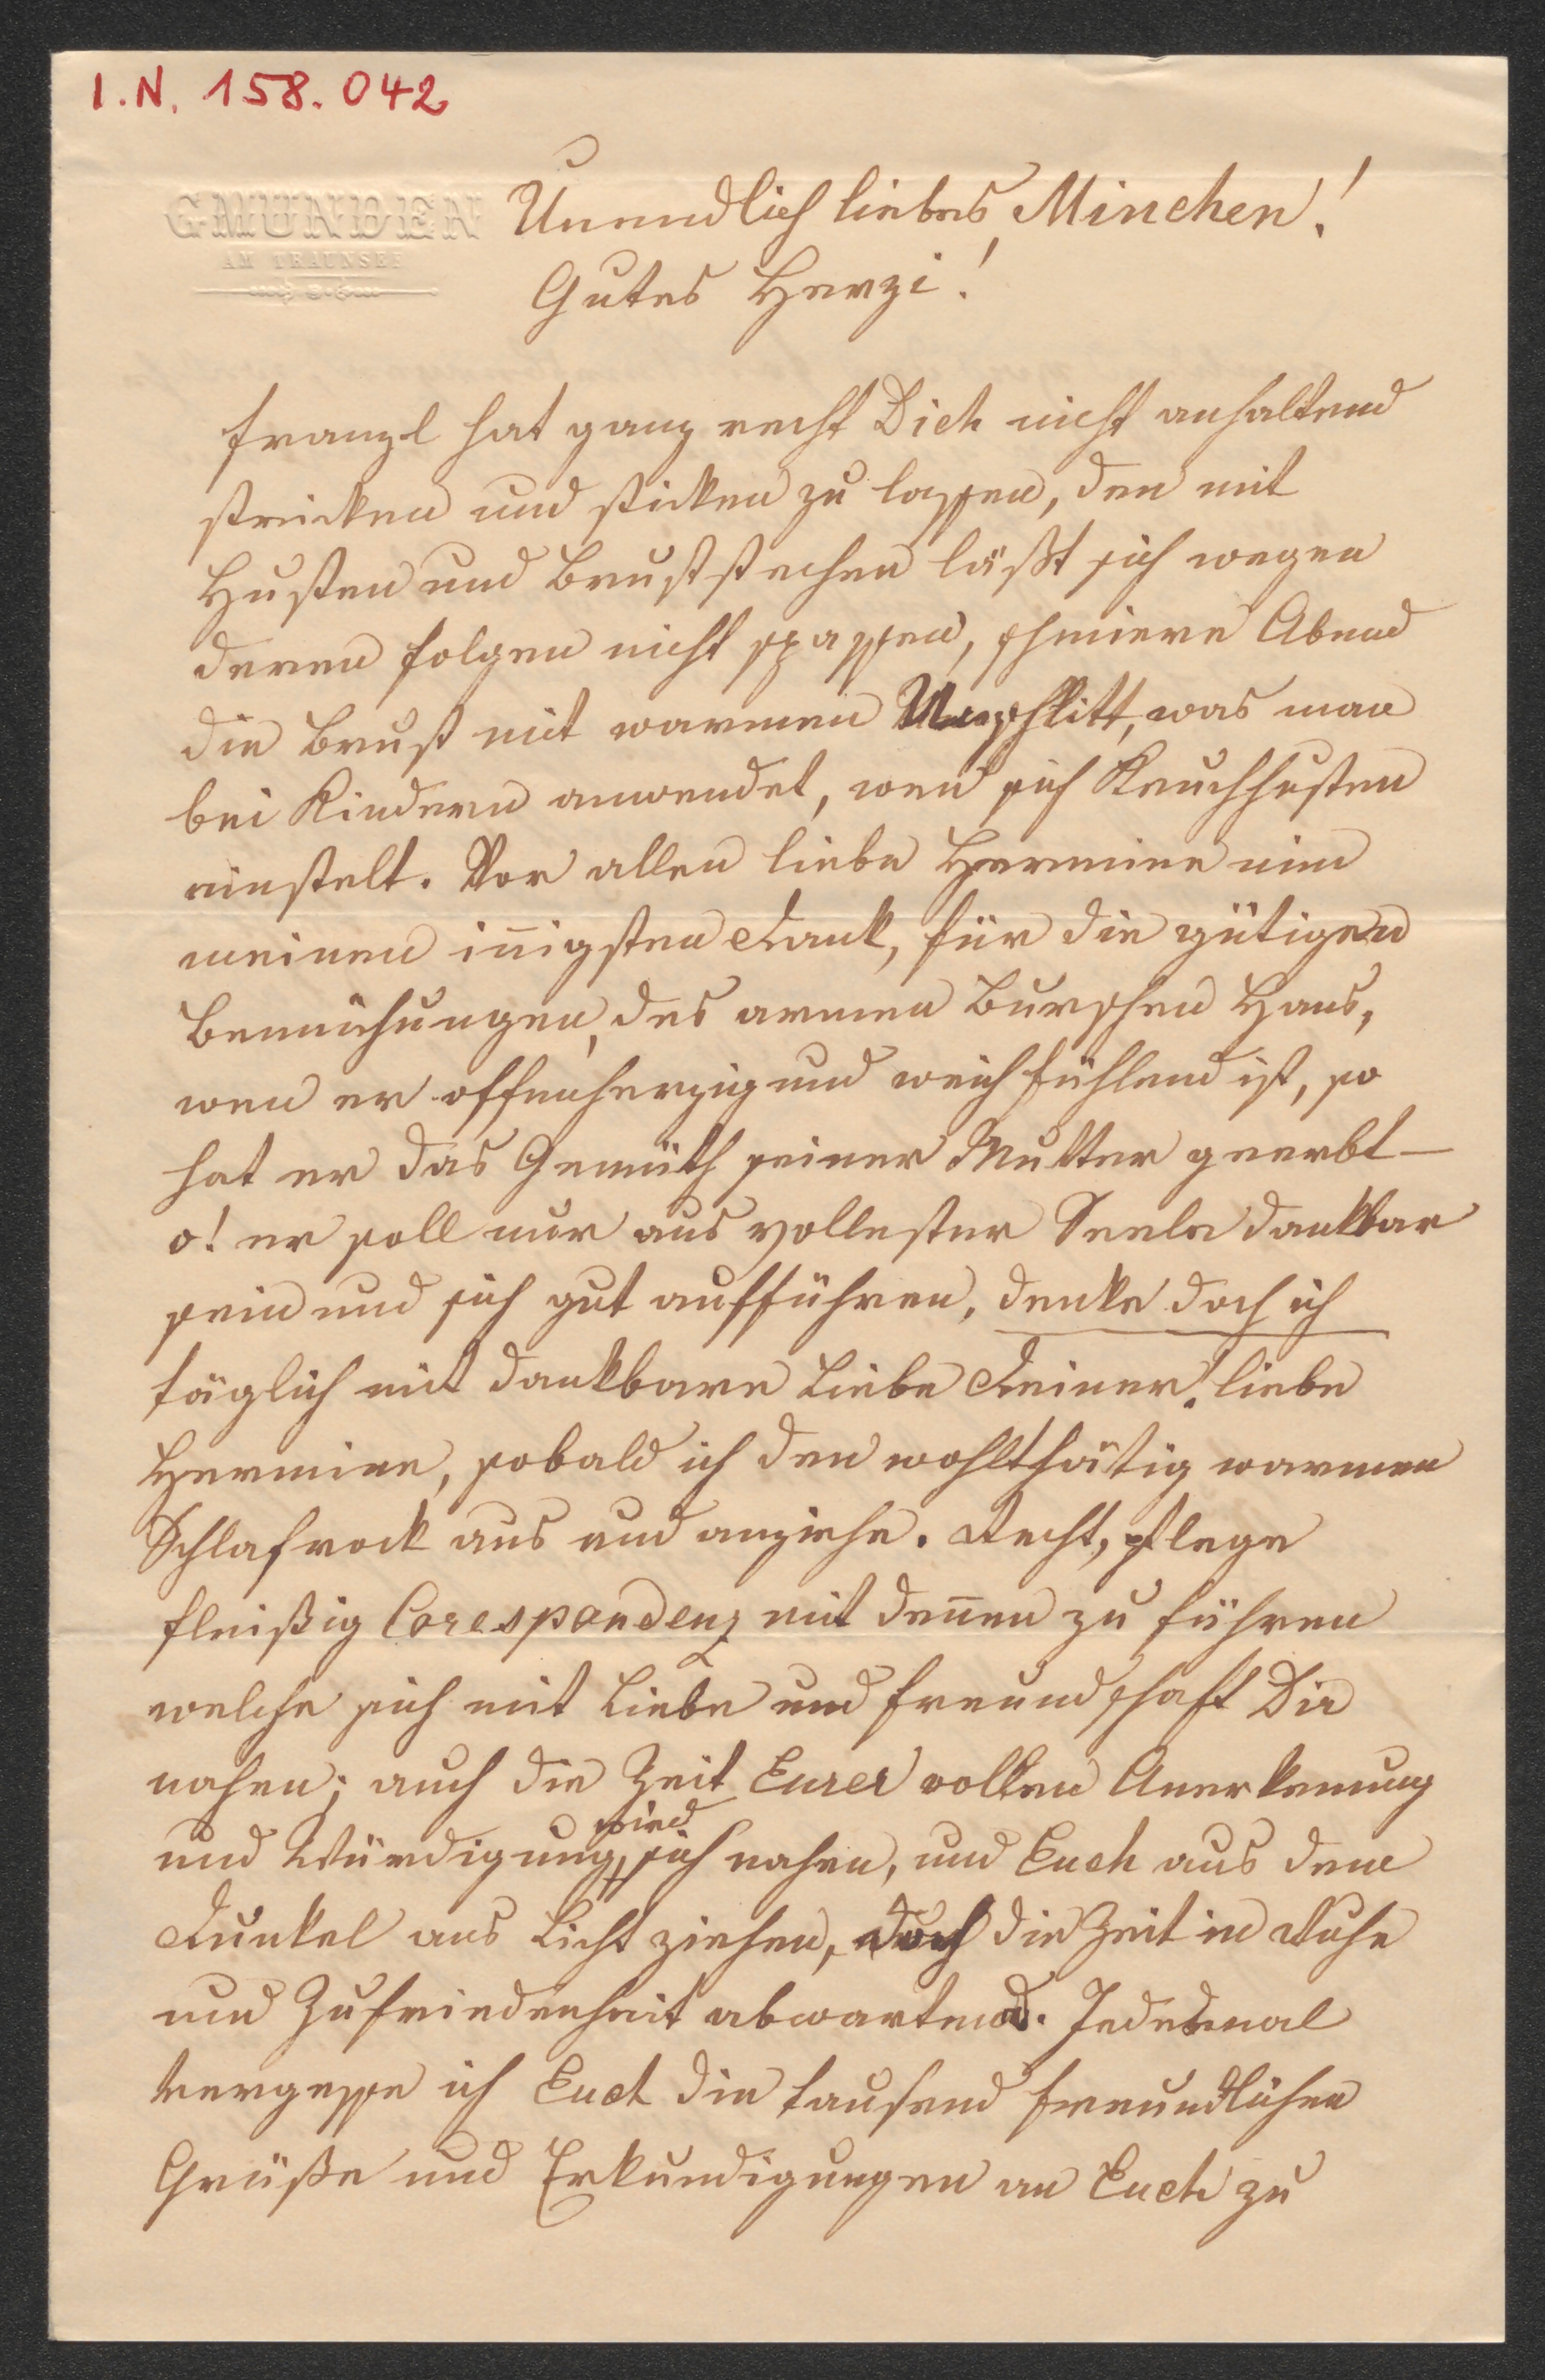 I.N. 158.042
GMUNDEN
AM TRAUNSEE
Unendlich liebes Minchen!
Gutes Herzi!
Franzl hat ganz recht Dich nicht anhaltend
stricken und sticken zu lassen, den mit
Husten und Bruststechen läßt sich wegen
deren Folgen nicht spassen, schmiere Abend
die Brust mit warmen Unschlitt, was man
bei Kindern anwendet, wen sich Keuchhusten
einstelt. Vor allen liebe Hermine nim
meinen inigsten Dank, für die gütigen
Bemühungen, des armen Burschen Hans,
wen er offenherzig und weichfühlend ist, so
hat er das Gemüth seiner Mutter geerbt —
o! er soll nur aus vollester Seele dankbar
sein und sich gut aufführen, denke doch ich
täglich mit dankbare Liebe Deiner! liebe
Hermine, sobald ich den wohlthätig warmen
Schlafrock aus und anziehe. Recht, pflege
fleißig Corespondenz mit denen zu führen
welche sich mit Liebe und Freundschaft Dir
nahen; auch die Zeit Eurer vollen Anerkenung
wird
und Würdigung sich nahen, und Euch aus dem
Dunkel ans Licht ziehen, doch die Zeit in Ruhe
und Zufriedenheit abwartend. Jedesmal
vergesse ich Euch die tausend freundlichen
Grüße und Erkundigungen an Euch zu